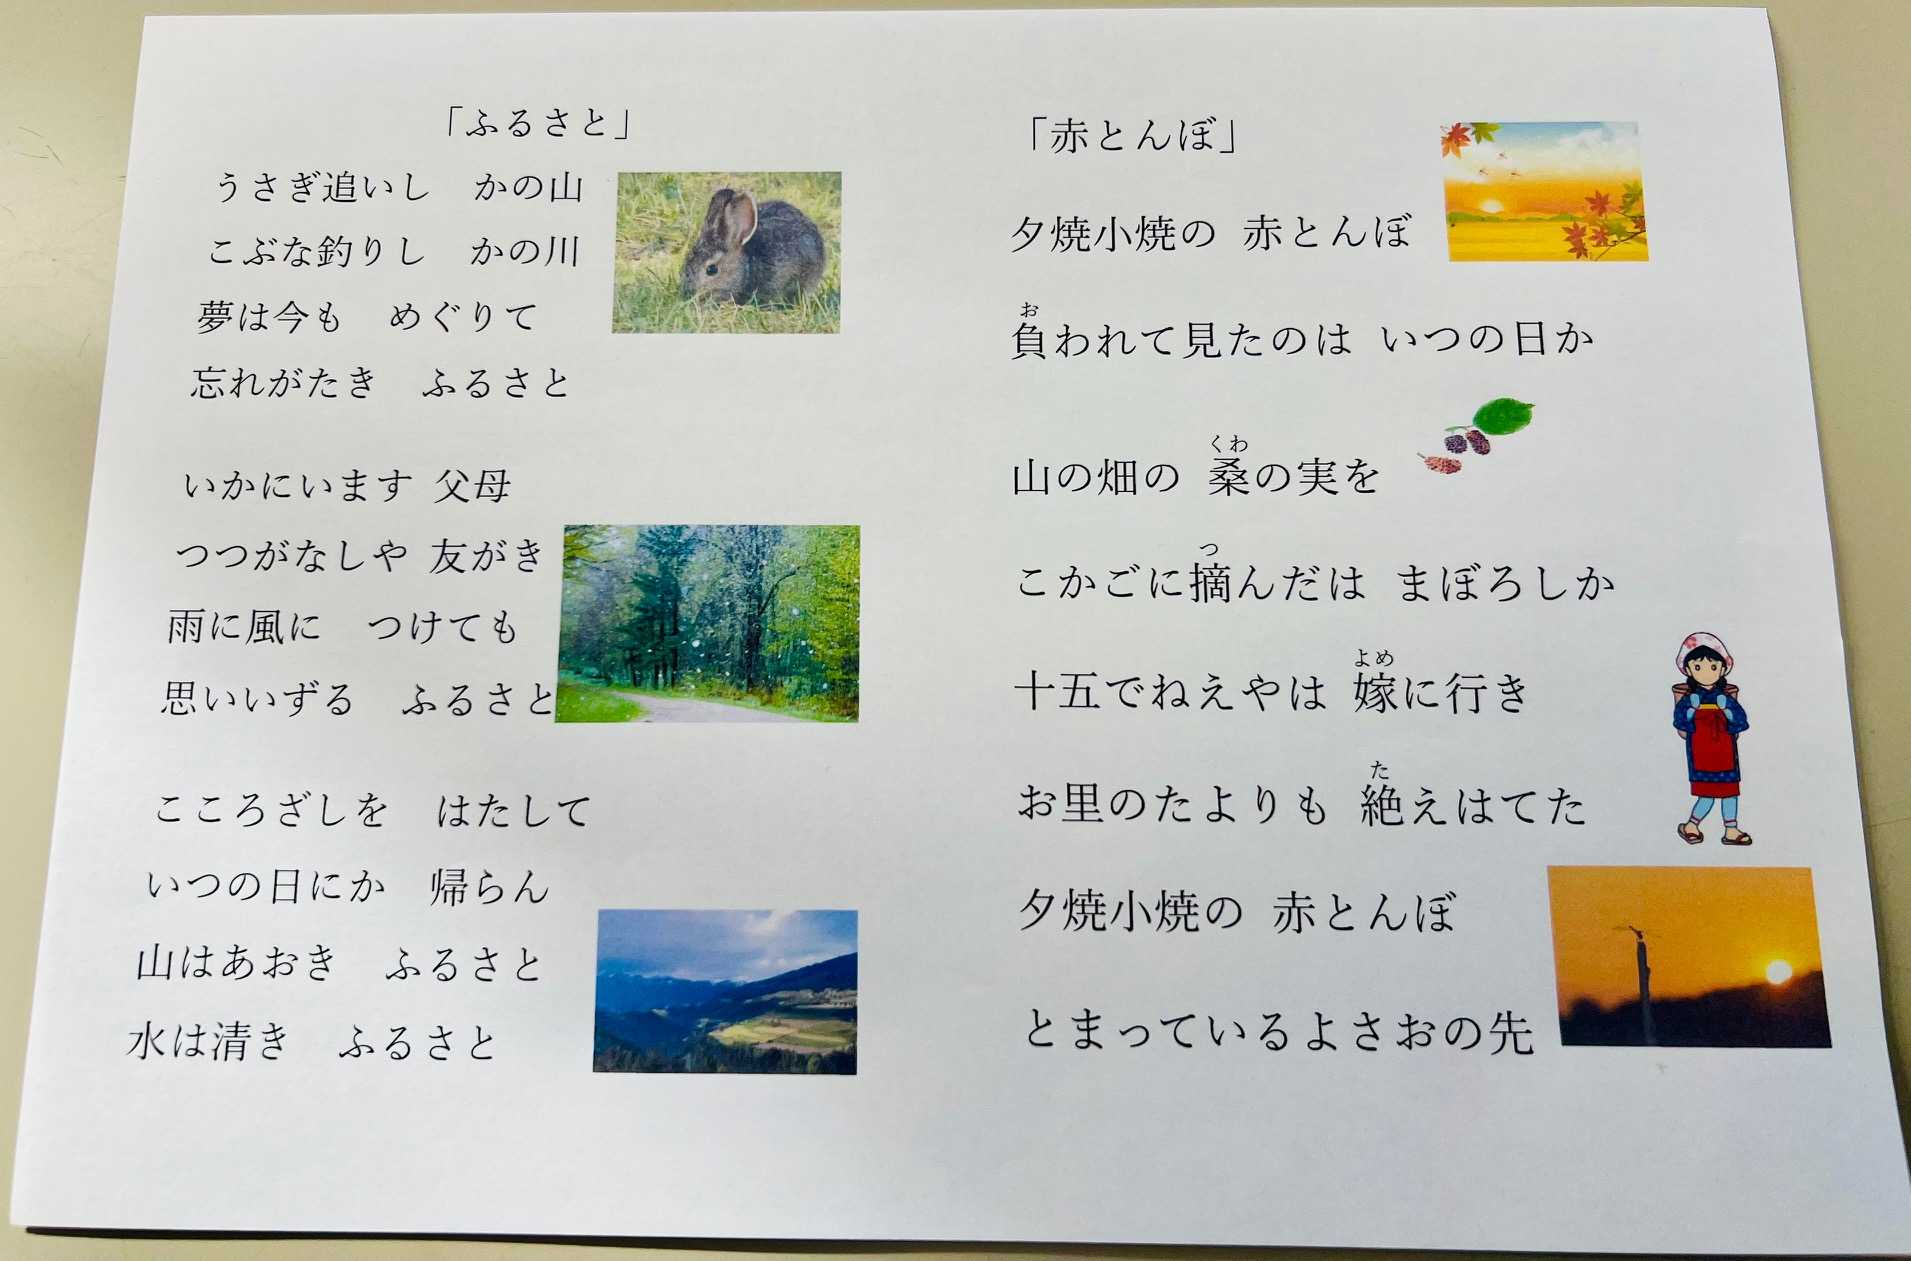 「ふるさと」
うさぎ追いし　かの山
こぶな釣りし　かの川
夢は今も　めぐりて
忘れがたき　ふるさと
いかにいます 父母
つつがなしや 友がき
雨に風に　つけても
思いいずる　ふるさと
こころざしを　はたして
いつの日にか　帰らん
山はあおき　ふるさと
水は清き　ふるさと
「赤とんぼ」
夕焼小焼の 赤とんぼ
お
負われて見たのは いつの日か
くわ
山の畑の 桑の実を
つ
こかごに摘んだは まぼろしか
よめ
十五でねえやは 嫁に行き
た
お里のたよりも 絶えはてた
夕焼小焼の 赤とんぼ
とまっているよさおの先